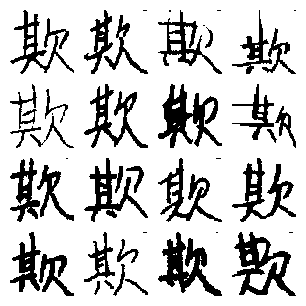 欺欺欺欺
欺欺欺欺
欺欺欺欺
欺欺欺欺